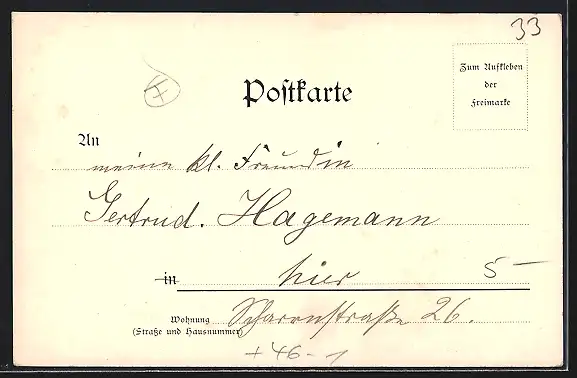 33
Zum Aufkleben
der
Freimarke
Postkarte
An
meine kl. Freundin
Gertrud. Hagemann
in hier 5-
Wohnung Scharrnstraße 26.
(Straße und Hausnummer)
+46-1